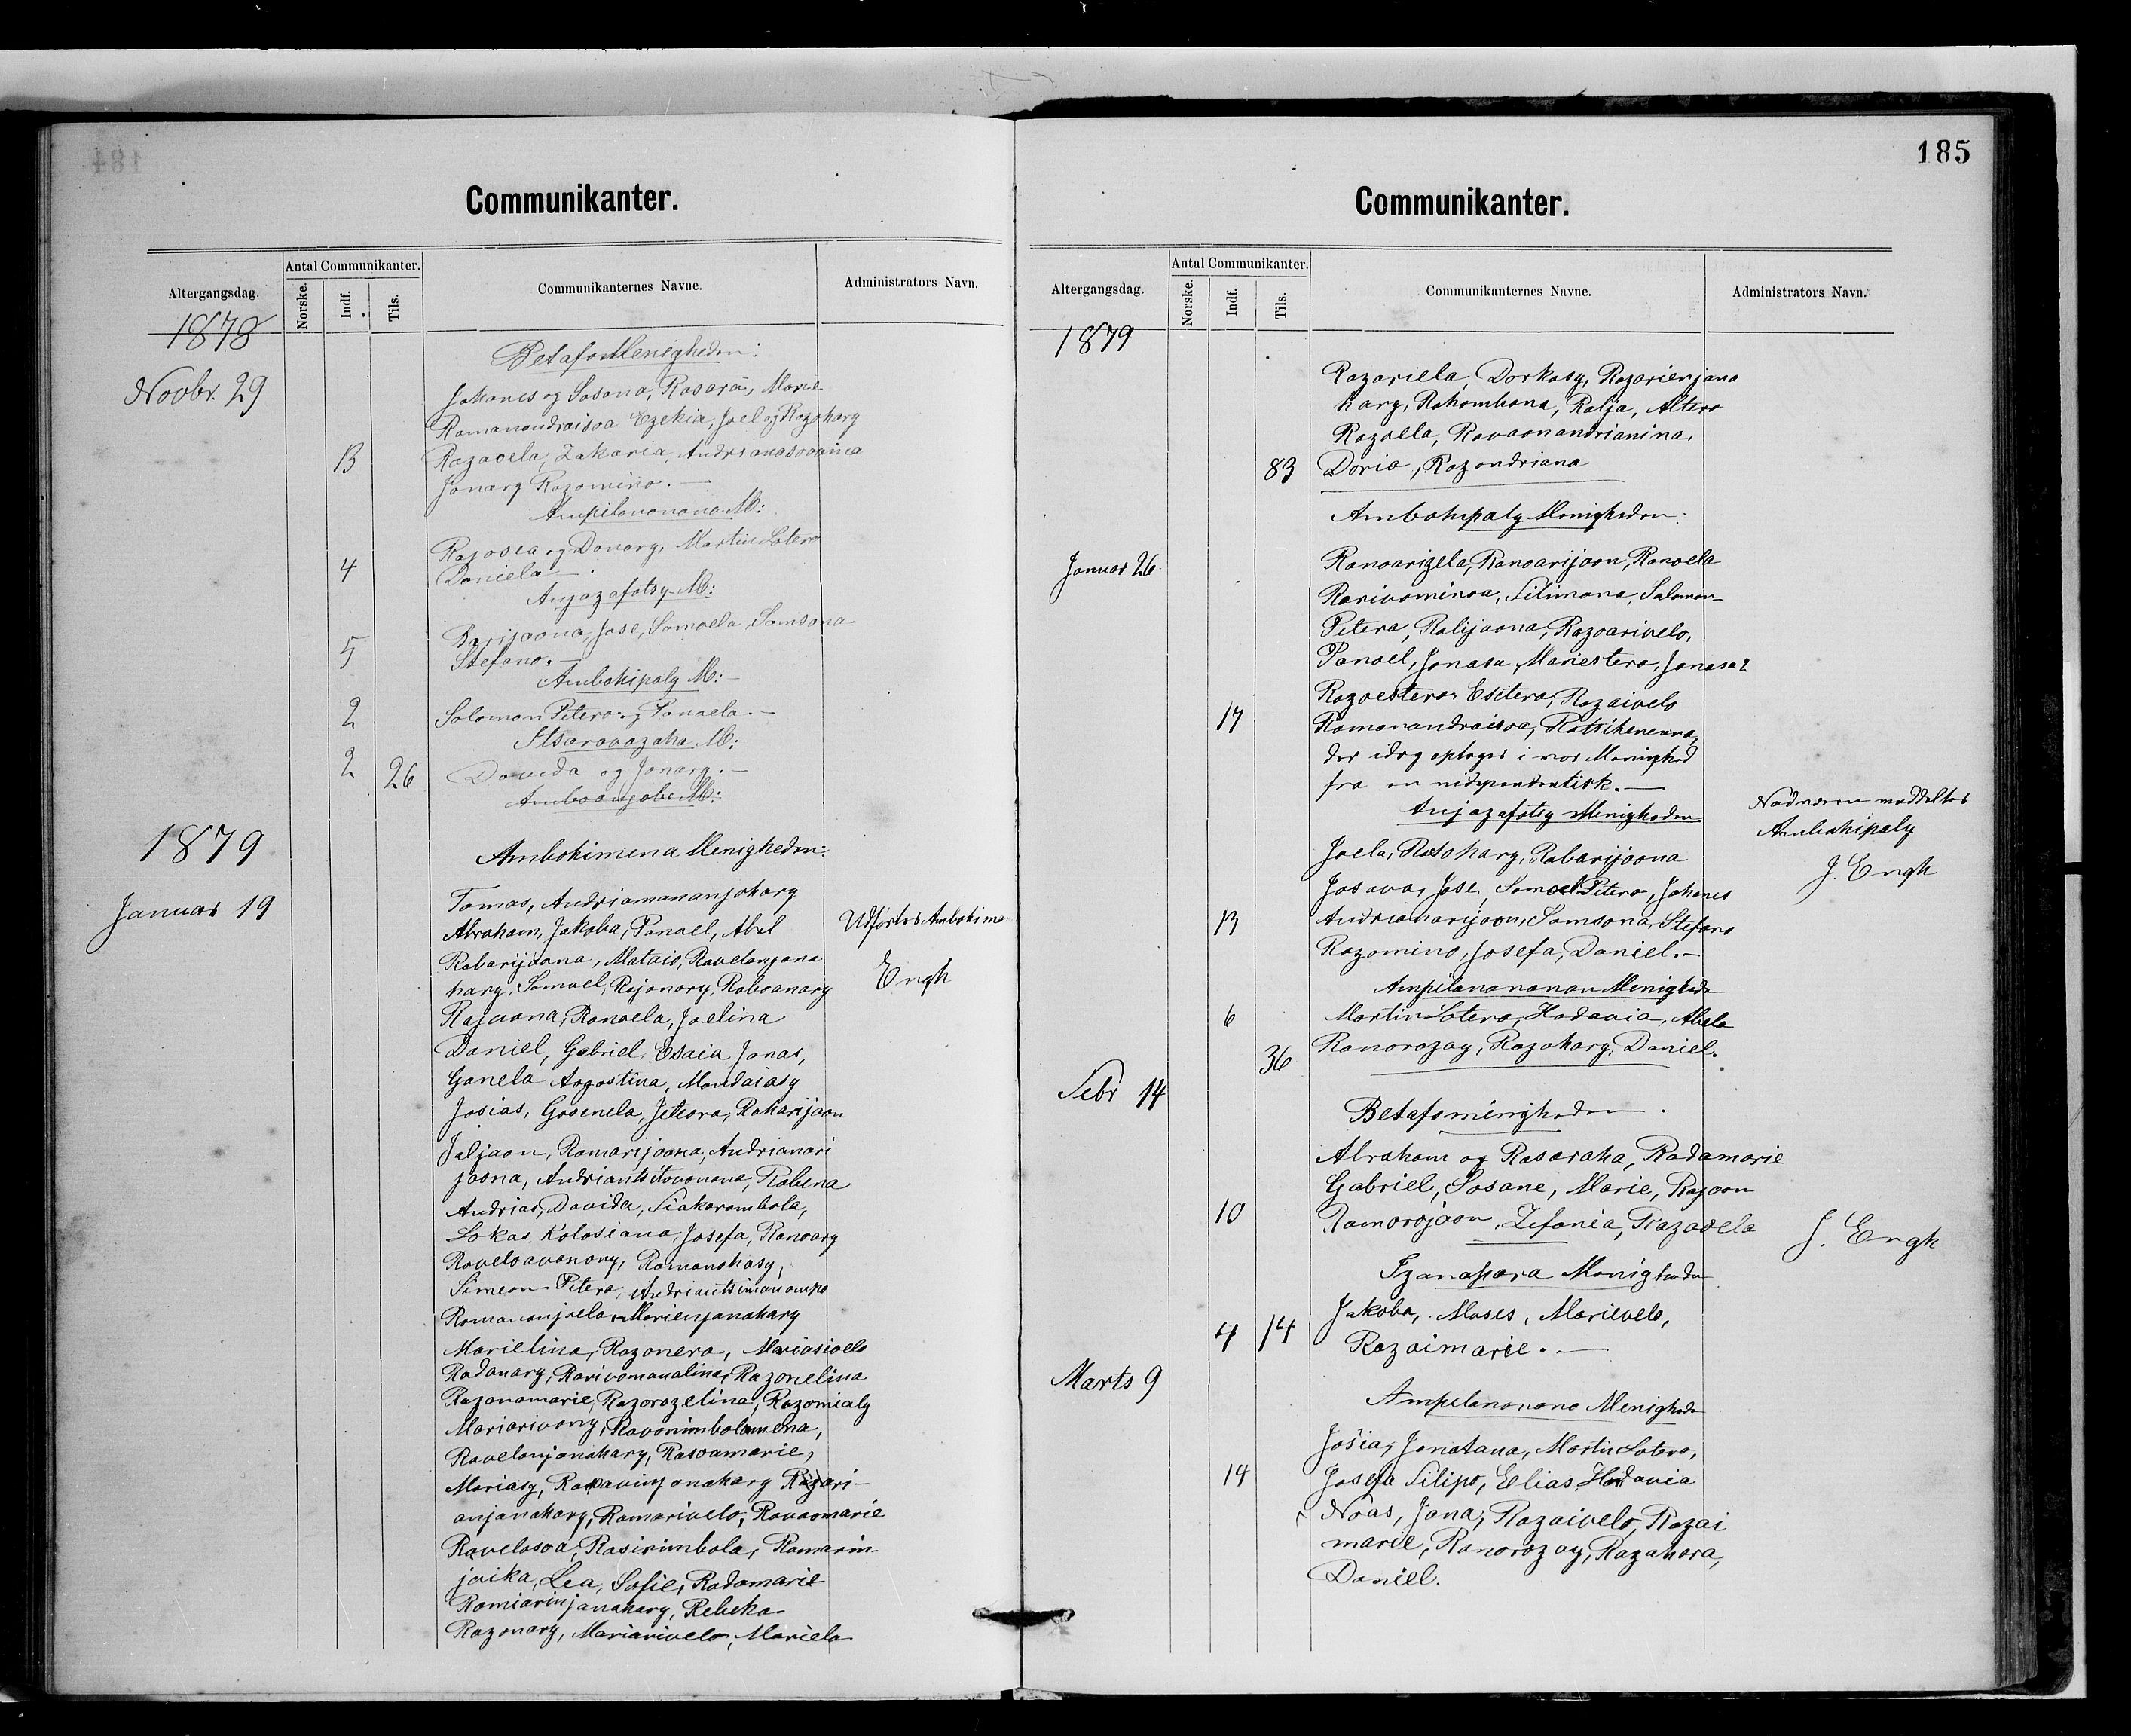 185
Communikanter.
Altergangsdag.
Antal Communikanter.
Norske.
Indf.
Tils.
Communikanternes Navne.
Administrators Navn.
1878
Betafo Menigheden:
Novbr. 29
Johanes og Sosana, Rasara, Marie
Ramanandraisoa Ezekia, Joel og Razohary
13 Razavela, Zakaria, Andrianasoavina
Jonary Razomino.
Ampilanonana M:
Razosea og Donary, Martin Lotera
4 Daniela
Anjazafotsy M:
Barijaona, Jose, Samoela, Samsona
5 Stefano.
Ambohipaly M:
2 Solomon Petera og Panoela.
Itsaravazaha M:
2 26 Davida og Jonary.
Amboanjobe M:
1879
Ambohimena Menigheden:
Januar 19
Tomas, Andriamananjohary
Abraham, Jakoba, Panoel, Abel
Udførtes Ambohime
Rabarijaona, Mataio, Ravelonjana
hary, Samoel, Rajonary, Raboanary
Engh
Rajaona, Ranoela, Joelina
Daniel, Gabriel, Esaia Jonas,
Ganela Aogostina, Mandaiasy
Josias, Gosenela, Jeteora, Raharijaon
Jaljaon, Ramarijaona, Andrianari
jaona, Andriantsitovonana, Rabena
Andrias, Davida, Siakarambola,
Lokas, Kolosiana, Josefa, Ranoary
Raveloavonony, Ramanohasy,
Simeon Petera, Andriantsimanampo
Ramananjoela Marienjanahary
Marielina, Razanera, Mariasivelo
Radanary, Rarivomanalina, Razonelina
Razanamarie, Razorozelina, Razomialy
Mariarivony, Ravonimbolamena,
Ravelonjanahary, Rasoamarie,
Mariasy, Ravavinjanahary Razari-
anjanahary, Ramarivelo, Ravaomarie
Ravelosoa, Rasirimbola, Ramarin
jaika, Lea, Sofie, Radamarie
Ramiarinjanahary, Rebeka
Razonary, Mariarivelo, Mariela
Communikanter.
Altergangsdag.
Antal Communikanter.
Norske.
Indf.
Tils.
Communikanternes Navne.
Administrators Navn.
1879
Razariela, Dorkasy, Razarienjana
hary, Rahombana, Ralja, Altera
Razoela, Ravaonandrianina,
83 Doria, Razondriana
Ambohipaly Menigheden:
Januar 26
Ranoarizela, Ranoarijaon, Ranoela
Rarivominoa, Silimona, Salomon
Petera, Ralijaona, Razoarivelo,
Panoel, Jonasa, Mariestera, Jonasa 2
Razoestera Esitera, Razaivelo
17 Ramanandraisoa, Ratsihenema,
der idag optoges i vor Menighed
fra en independentisk.
Nadveren meddeltes
Anjazafotsy Menigheden
Ambohipaly
Joela, Ratsohary, Rabarijaona
J. Engh
Josava, Jose, Samoel Petera, Johanes
13 Andrianarijaon, Samsona, Stefano
Razomino, Josefa, Daniel.
Ampilanonana Menigheden
6 Martin Lotera, Hodavia, Abela
36 Ranorozay, Razohary, Daniel.
Febr 14
Betafomenigheden.
Abraham og Rasaraha, Radamarie
Gabriel, Sosane, Marie, Rajoon
10 Ramorojaon, Zefania, Razavela
J. Engh
Tzanapara Menigheden
Jakoba, Moses, Marievelo,
4 14 Razaimarie.
Marts 9
Ampilanonana Menigheden
Josia, Jonatana, Martin Lotera,
14 Josefa Filipo, Elias, Hodavia
Noas, Jona, Razaivelo, Razai
marie, Ranorozay, Razahara,
Daniel.